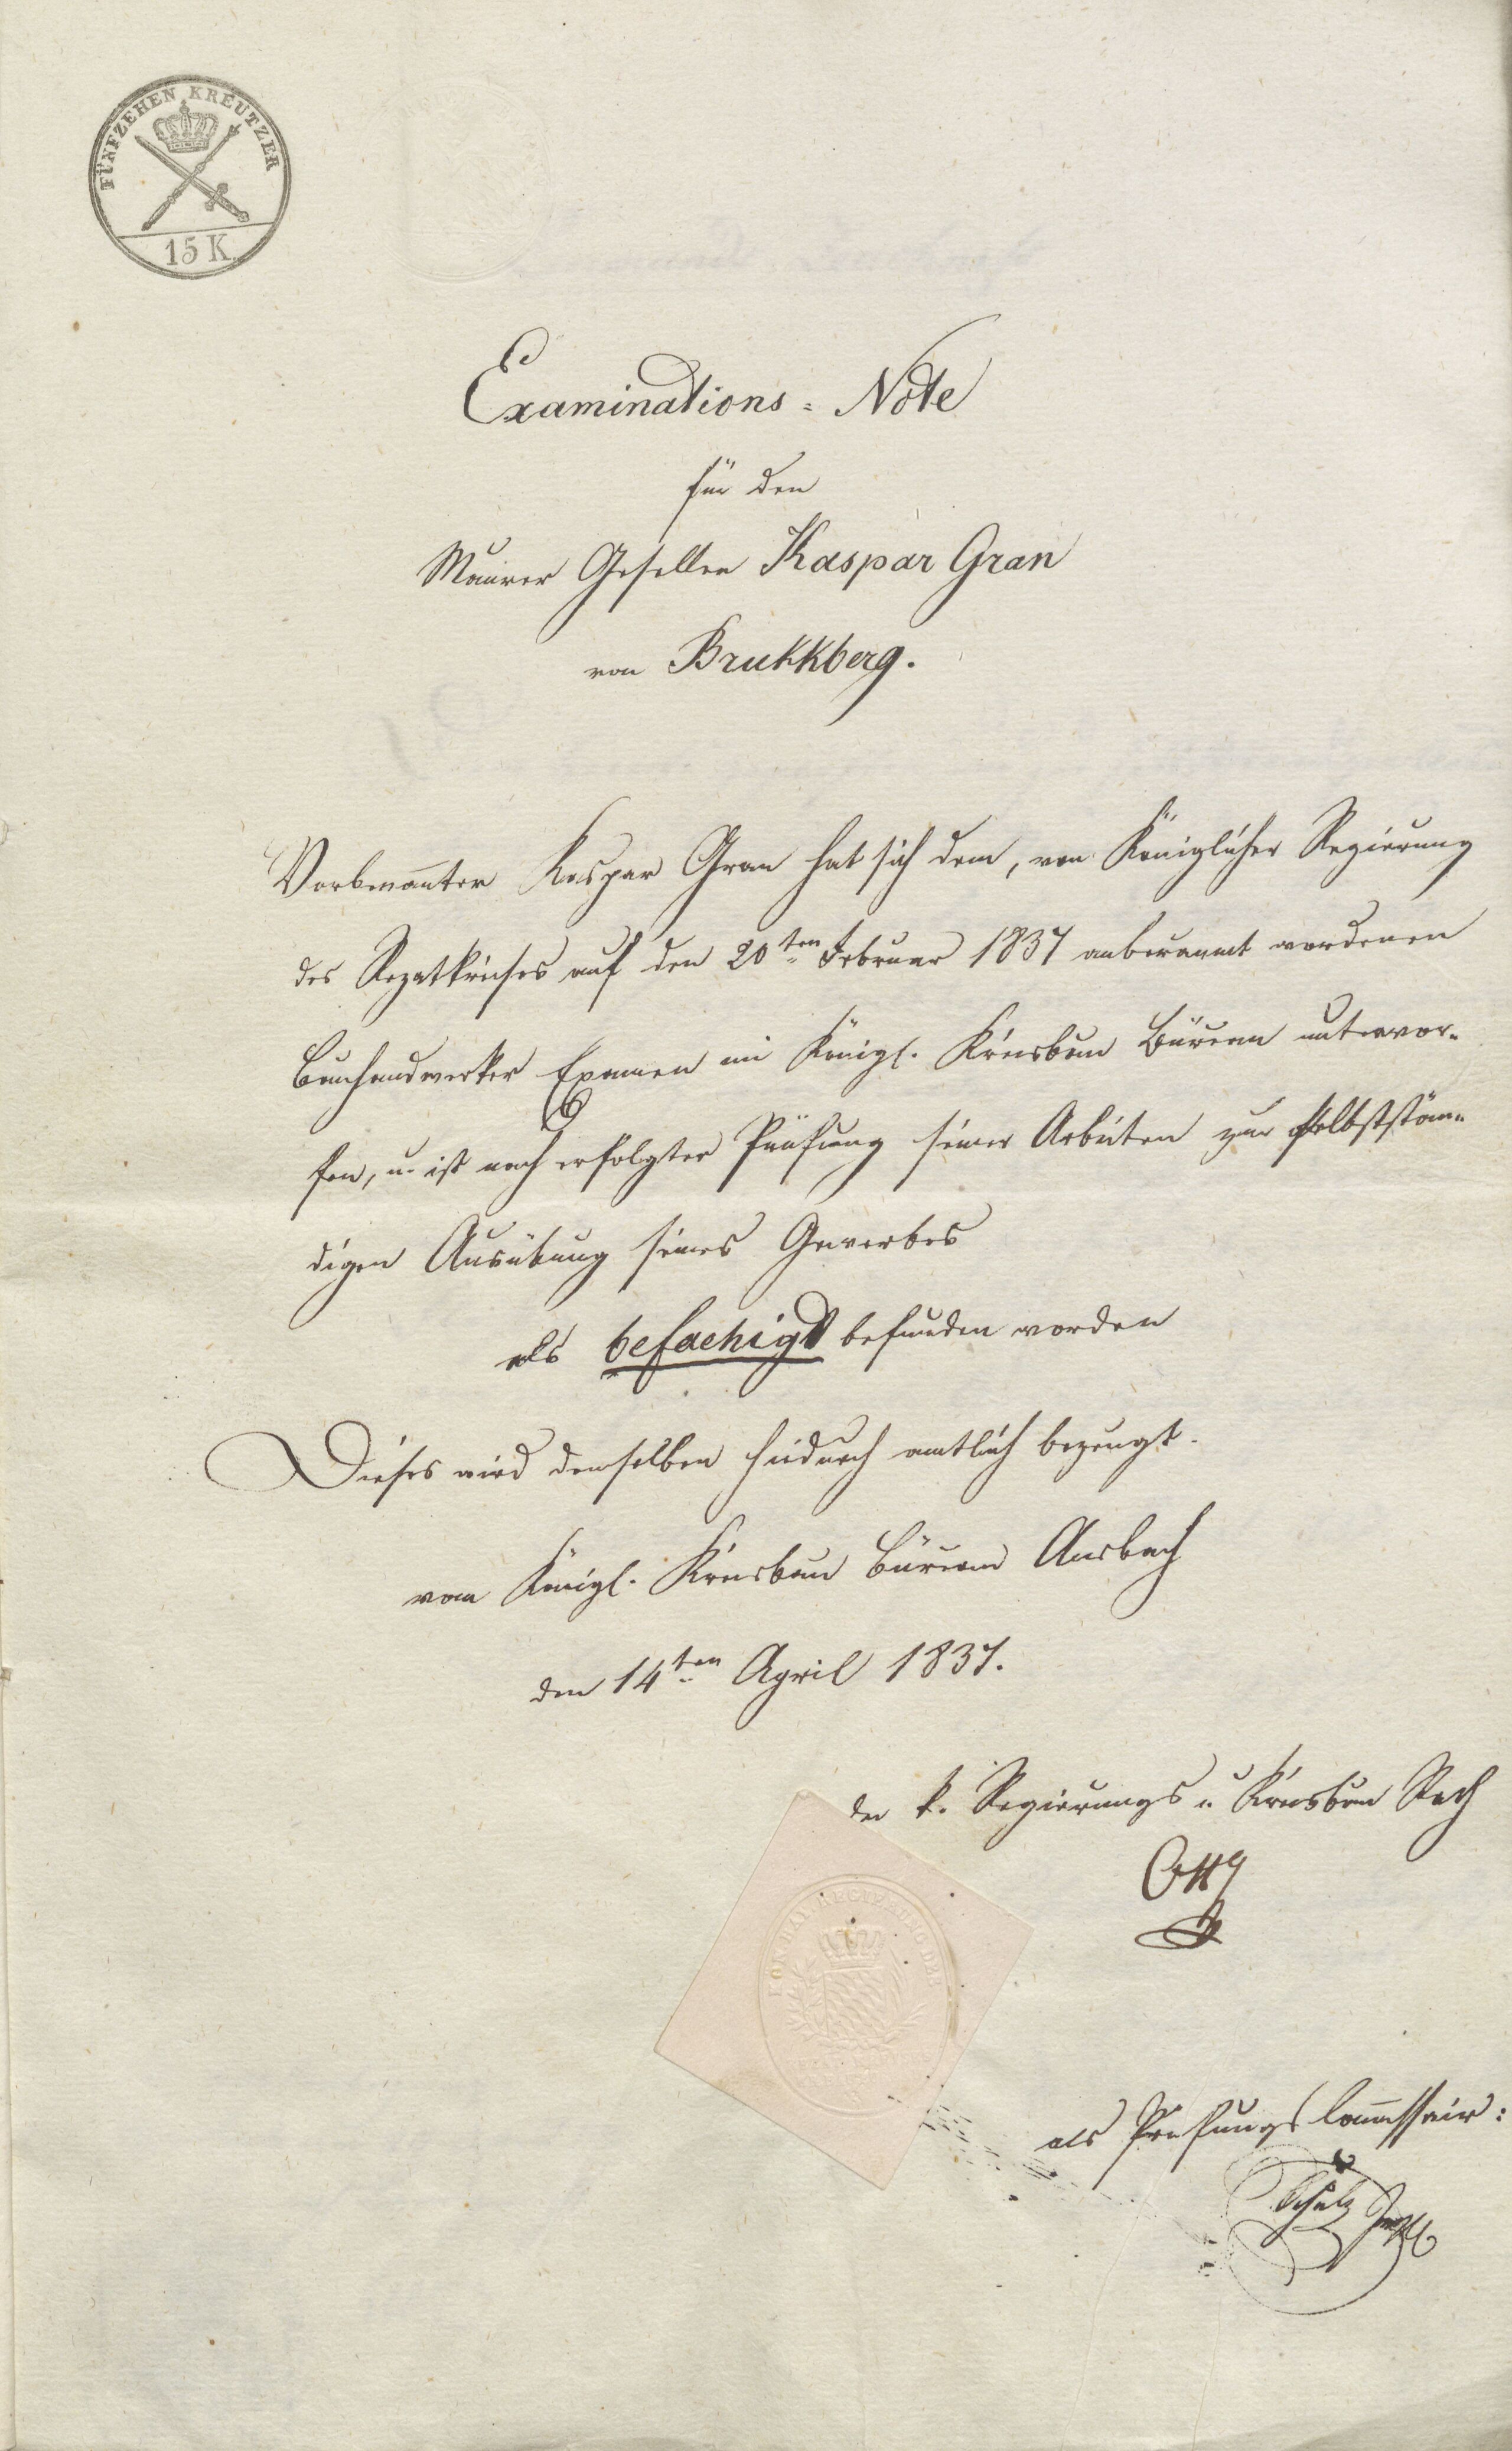 FÜNFZEHEN KREUTZER
15 K
Examinations = Note
für den
Maurer Gesellen Kaspar Gran
von Brukkberg.
Vorbenannter Kaspar Gran hat sich dem, von Königlicher Regierung
des Rezatkreises auf den 20ten Februar 1837 anberaumt wordenen
Bauhandwerker Examen im Königl. Kreisbau Büreau unterwor-
fen, u. ist nach erfolgter Prüfung seiner Arbeiten zur selbststän-
digen Ausübung seines Gewerbes
als befaehigt befunden worden
Dieses wird demselben hiedurch amtlich bezeugt.
vom Königl. Kreisbau Büreau Ansbach
den 14ten April 1837.
der k. Regierungs u Kreisbau Rath
als Prüfungs Commissair:
Schulz